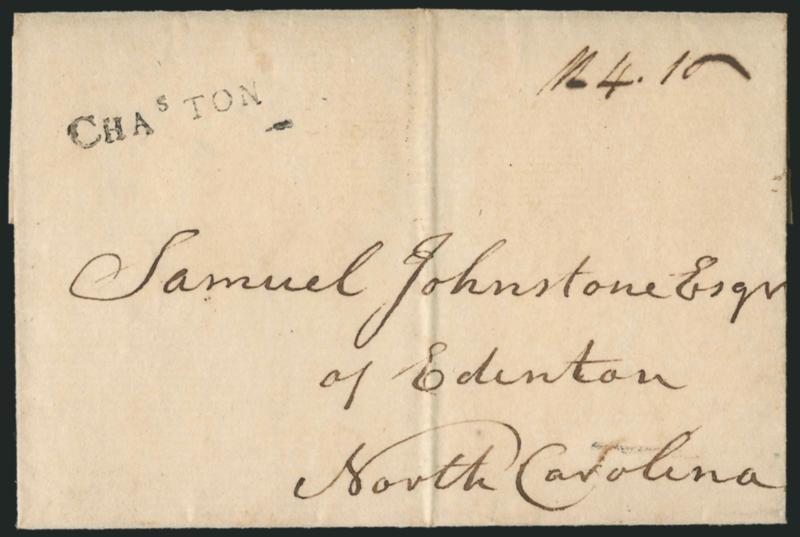 CHAˢ TON
4.16
Samuel Johnstone Esqr
of Edenton
North Carolina